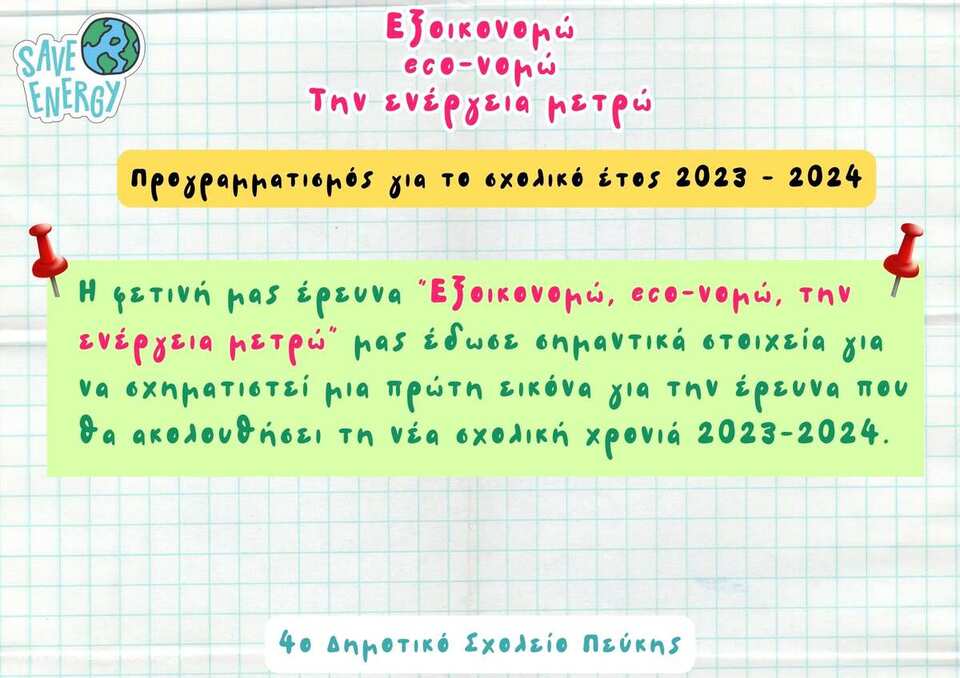 SAVE
ENERGY
Εξοικονομώ
eco-νομώ
Την ενέργεια μετρώ
Προγραμματισμός για το σχολικό έτος 2023 - 2024
Η φετινή μας έρευνα "Εξοικονομώ, eco-νομώ, την
ενέργεια μετρώ" μας έδωσε σημαντικά στοιχεία για
να σχηματιστεί μια πρώτη εικόνα για την έρευνα που
θα ακολουθήσει τη νέα σχολική χρονιά 2023-2024.
4ο Δημοτικό Σχολείο Πεύκης